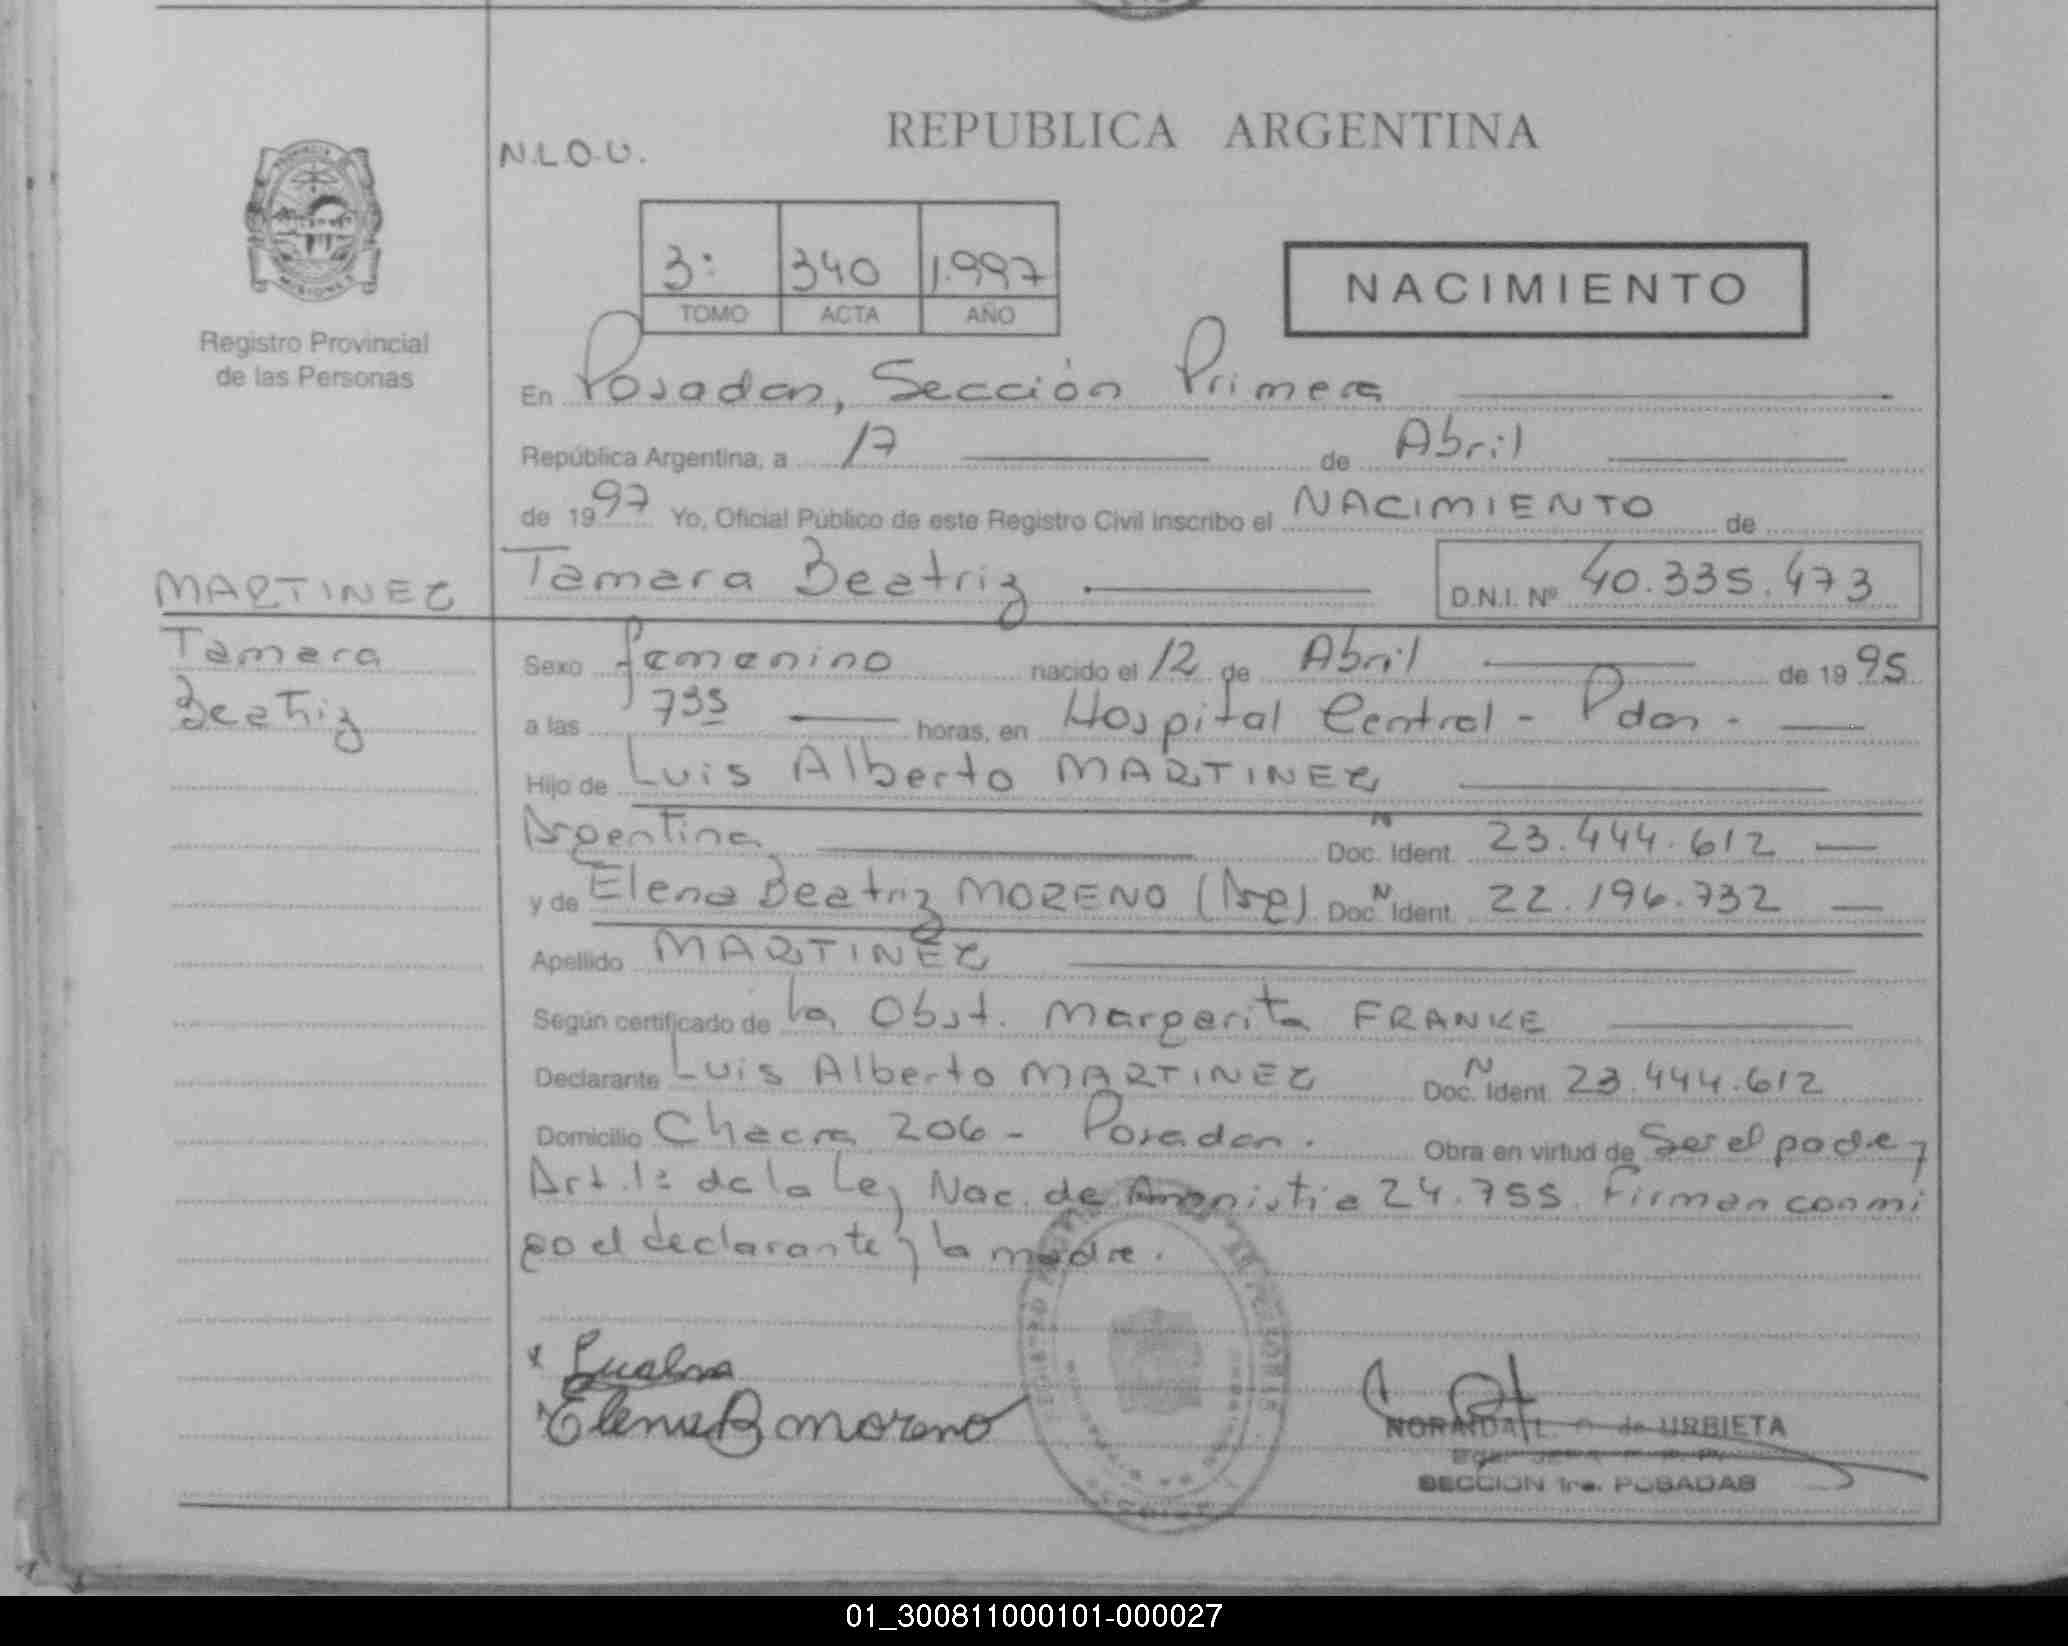 REPUBLICA ARGENTINA
N.L.O.U.
3: 340 1.997
TOMO ACTA AÑO
NACIMIENTO
Registro Provincial
de las Personas
En Posadas, Sección Primera
República Argentina, a 17 de Abril
de 1997 Yo, Oficial Público de este Registro Civil inscribo el NACIMIENTO de
MARTINEZ
Tamara
Beatriz
Tamara Beatriz D.N.I. Nº 40.335.473
Sexo femenino nacido el 12 de Abril de 1995
a las 735 horas, en Hospital Central - Pdas -
Hijo de Luis Alberto MARTINEZ
Argentina Doc. N Ident. 23.444.612
y de Elena Beatriz MORENO (Arg) Doc. N Ident. 22.196.732
Apellido MARTINEZ
Según certificado de la Obst. Margarita FRANKE
Declarante Luis Alberto MARTINEZ Doc. N Ident. 23.444.612
Domicilio Chacra 206 - Posadas. Obra en virtud de Ser el padre y
Art. 1º de la Ley Nac. de Amnistia 24.755. Firman conmi
go el declarante y la madre.
Elena B moreno
de URBIETA
SECCION 1ra. POSADAS
01_300811000101-000027